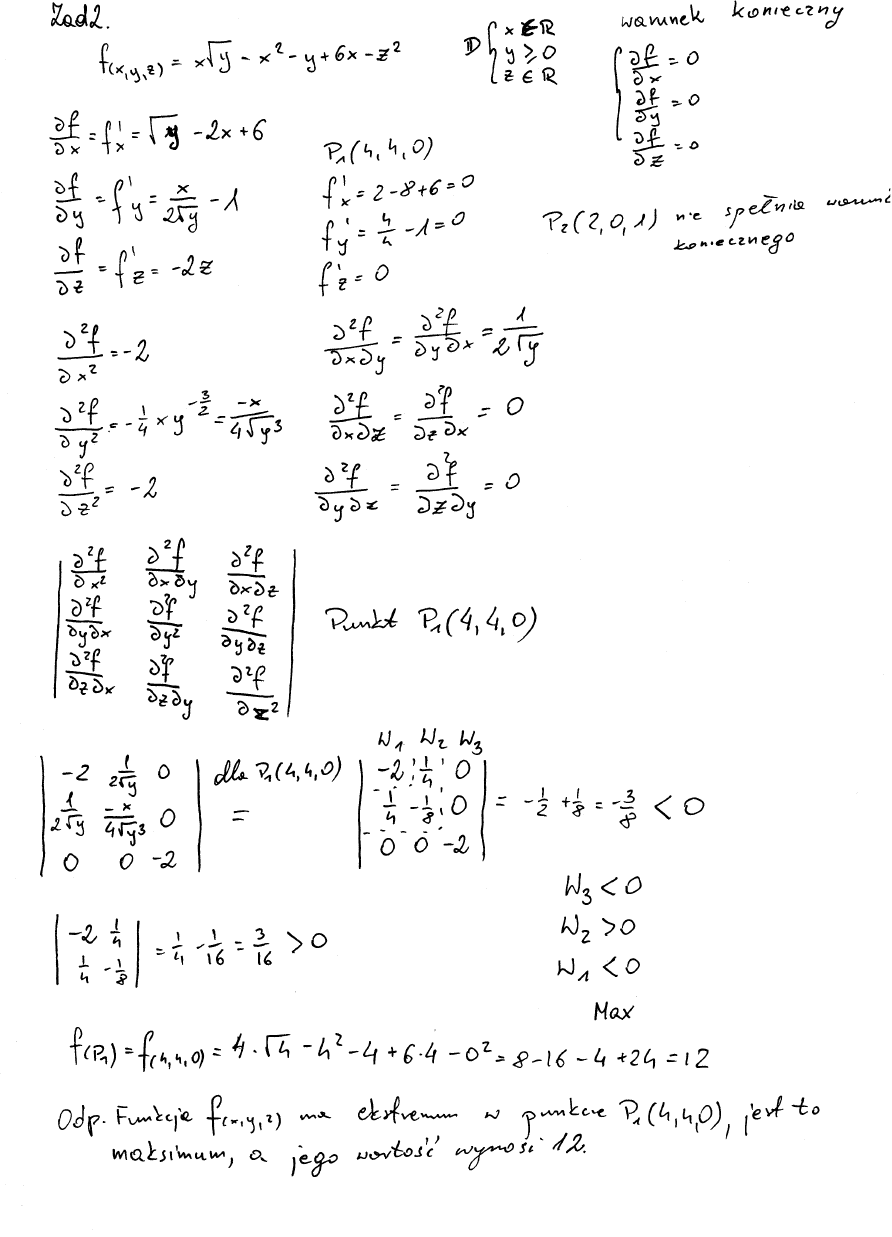 Zad2.
f(x,y,z) = x√y - x² - y + 6x - z²
D { x ∈ ℝ
y ≥ 0
z ∈ ℝ
warunek konieczny
{ ∂f/∂x = 0
∂f/∂y = 0
∂f/∂z = 0
∂f/∂x = f'x = √y - 2x + 6
∂f/∂y = f'y = x/2√y - 1
∂f/∂z = f'z = -2z
P₁(4,4,0)
f'x = 2-8+6=0
f'y = 4/4 - 1 = 0
f'z = 0
P₂(2,0,1) nie spełnia warun
koniecznego
∂²f/∂x² = -2
∂²f/∂y² = -1/4 x y^(-3/2) = -x/4√y³
∂²f/∂z² = -2
∂²f/∂x∂y = ∂²f/∂y∂x = 1/2√y
∂²f/∂x∂z = ∂²f/∂z∂x = 0
∂²f/∂y∂z = ∂²f/∂z∂y = 0
| ∂²f/∂x² ∂²f/∂x∂y ∂²f/∂x∂z |
| ∂²f/∂y∂x ∂²f/∂y² ∂²f/∂y∂z |
| ∂²f/∂z∂x ∂²f/∂z∂y ∂²f/∂z² |
Punkt P₁(4,4,0)
| -2 1/2√y 0 |
| 1/2√y -x/4√y³ 0 |
| 0 0 -2 |
dla P₁(4,4,0)
=
W₁ W₂ W₃
| -2 1/4 0 |
| 1/4 -1/8 0 |
| 0 0 -2 |
= -1/2 + 1/8 = -3/8 < 0
W₃ < 0
W₂ > 0
W₁ < 0
Max
| -2 1/4 |
| 1/4 -1/8 |
= 1/4 - 1/16 = 3/16 > 0
f(P₁) = f(4,4,0) = 4·√4 - 4² - 4 + 6·4 - 0² = 8-16-4+24 = 12
Odp. Funkcja f(x,y,z) ma ekstremum w punkcie P₁(4,4,0), jest to
maksimum, a jego wartość wynosi 12.